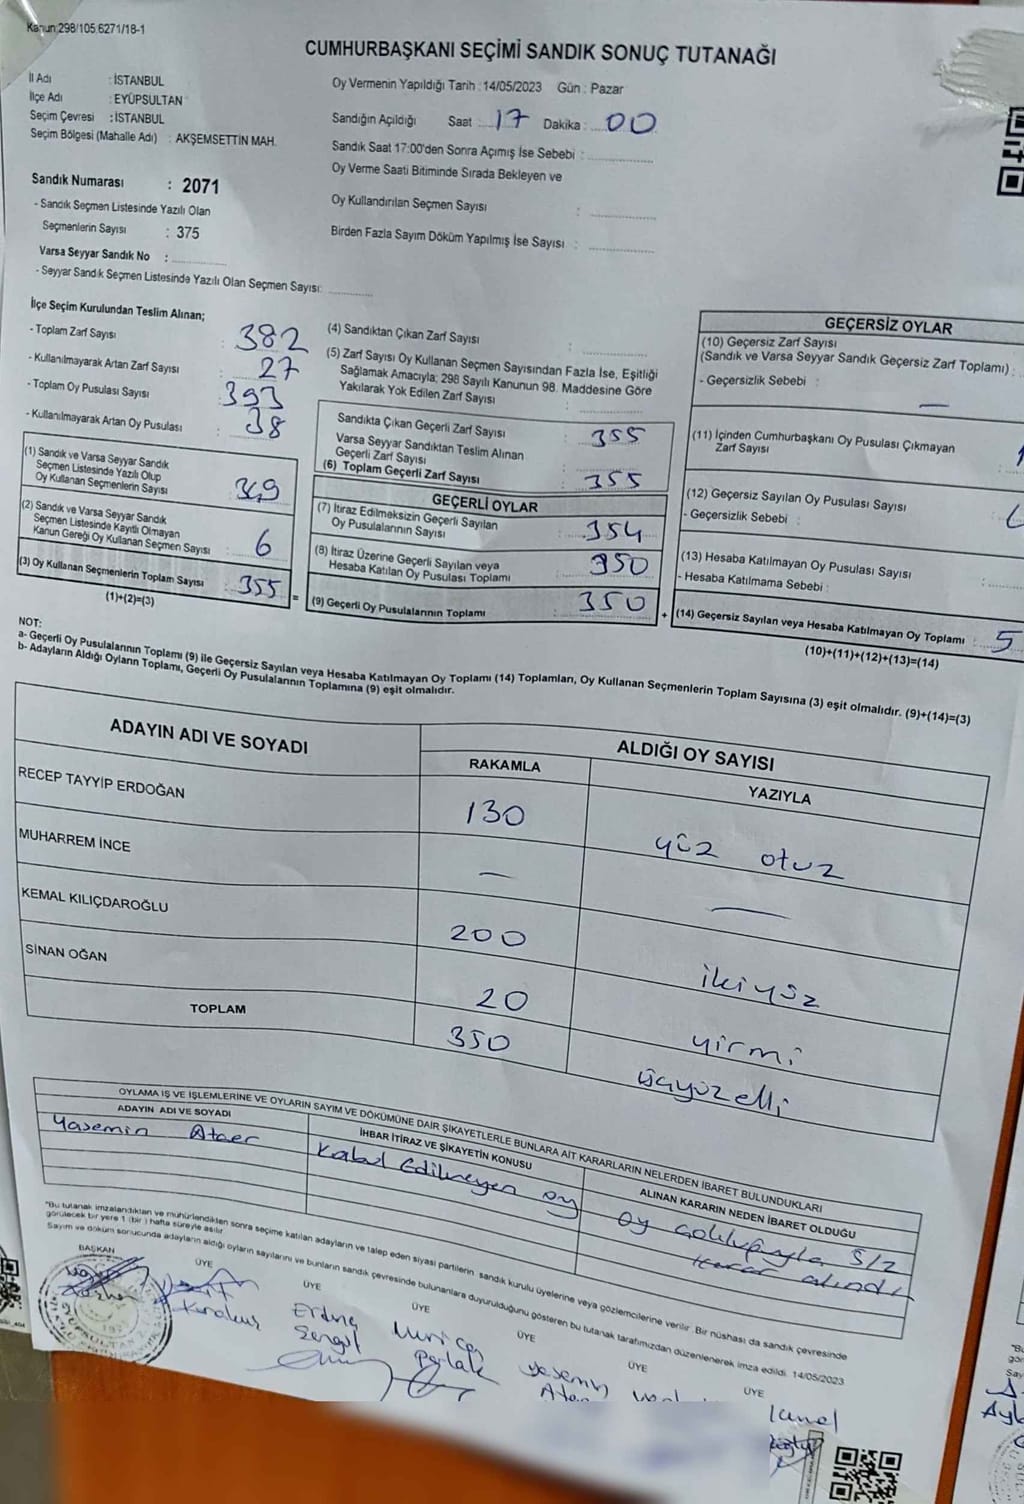 Kanun:298/105,6271/18-1
CUMHURBAŞKANI SEÇİMİ SANDIK SONUÇ TUTANAĞI
İl Adı : İSTANBUL
İlçe Adı : EYÜPSULTAN
Seçim Çevresi : İSTANBUL
Seçim Bölgesi (Mahalle Adı) : AKŞEMSETTİN MAH.
Oy Vermenin Yapıldığı Tarih : 14/05/2023 Gün : Pazar
Sandığın Açıldığı Saat : 17 Dakika : 00
Sandık Saat 17:00'den Sonra Açımış İse Sebebi :
Oy Verme Saati Bitiminde Sırada Bekleyen ve
Oy Kullandırılan Seçmen Sayısı :
Birden Fazla Sayım Döküm Yapılmış İse Sayısı :
Sandık Numarası : 2071
- Sandık Seçmen Listesinde Yazılı Olan
Seçmenlerin Sayısı : 375
Varsa Seyyar Sandık No :
- Seyyar Sandık Seçmen Listesinde Yazılı Olan Seçmen Sayısı:
İlçe Seçim Kurulundan Teslim Alınan;
- Toplam Zarf Sayısı : 382
- Kullanılmayarak Artan Zarf Sayısı : 27
- Toplam Oy Pusulası Sayısı : 393
- Kullanılmayarak Artan Oy Pusulası : 38
(1) Sandık ve Varsa Seyyar Sandık
Seçmen Listesinde Yazılı Olup
Oy Kullanan Seçmenlerin Sayısı : 349
(2) Sandık ve Varsa Seyyar Sandık
Seçmen Listesinde Kayıtlı Olmayan
Kanun Gereği Oy Kullanan Seçmen Sayısı : 6
(3) Oy Kullanan Seçmenlerin Toplam Sayısı : 355
(1)+(2)=(3)
(4) Sandıktan Çıkan Zarf Sayısı :
(5) Zarf Sayısı Oy Kullanan Seçmen Sayısından Fazla İse, Eşitliği
Sağlamak Amacıyla; 298 Sayılı Kanunun 98. Maddesine Göre
Yakılarak Yok Edilen Zarf Sayısı :
Sandıkta Çıkan Geçerli Zarf Sayısı : 355
Varsa Seyyar Sandıktan Teslim Alınan
Geçerli Zarf Sayısı :
(6) Toplam Geçerli Zarf Sayısı : 355
GEÇERLİ OYLAR
(7) İtiraz Edilmeksizin Geçerli Sayılan
Oy Pusulalarının Sayısı : 354
(8) İtiraz Üzerine Geçerli Sayılan veya
Hesaba Katılan Oy Pusulası Toplamı : 350
= (9) Geçerli Oy Pusulalarının Toplamı : 350
GEÇERSİZ OYLAR
(10) Geçersiz Zarf Sayısı
(Sandık ve Varsa Seyyar Sandık Geçersiz Zarf Toplamı) :
- Geçersizlik Sebebi : —
(11) İçinden Cumhurbaşkanı Oy Pusulası Çıkmayan
Zarf Sayısı : 1
(12) Geçersiz Sayılan Oy Pusulası Sayısı :
- Geçersizlik Sebebi :
(13) Hesaba Katılmayan Oy Pusulası Sayısı :
- Hesaba Katılmama Sebebi :
+ (14) Geçersiz Sayılan veya Hesaba Katılmayan Oy Toplamı : 5
(10)+(11)+(12)+(13)=(14)
NOT:
a- Geçerli Oy Pusulalarının Toplamı (9) ile Geçersiz Sayılan veya Hesaba Katılmayan Oy Toplamı (14) Toplamları, Oy Kullanan Seçmenlerin Toplam Sayısına (3) eşit olmalıdır. (9)+(14)=(3)
b- Adayların Aldığı Oyların Toplamı, Geçerli Oy Pusulalarının Toplamına (9) eşit olmalıdır.
ADAYIN ADI VE SOYADI
ALDIĞI OY SAYISI
RAKAMLA YAZIYLA
RECEP TAYYİP ERDOĞAN 130 yüz otuz
MUHARREM İNCE — —
KEMAL KILIÇDAROĞLU 200 ikiyüz
SİNAN OĞAN 20 yirmi
TOPLAM 350 üçyüzelli
OYLAMA İŞ VE İŞLEMLERİNE VE OYLARIN SAYIM VE DÖKÜMÜNE DAİR ŞİKAYETLERLE BUNLARA AİT KARARLARIN NELERDEN İBARET BULUNDUKLARI
ADAYIN ADI VE SOYADI İHBAR İTİRAZ VE ŞİKAYETİN KONUSU ALINAN KARARIN NEDEN İBARET OLDUĞU
Yasemin Ataer Kabul Edilmeyen oy oy çokluğuyla 5/2
karar alındı
*Bu tutanak imzalandıktan ve mühürlendikten sonra seçime katılan adayların ve talep eden siyasi partilerin sandık kurulu üyelerine veya gözlemcilerine verilir. Bir nüshası da sandık çevresinde
görülecek bir yere 1 (bir) hafta süreyle asılır.
Sayım ve döküm sonucunda adayların aldığı oyların sayılarını ve bunların sandık çevresinde bulunanlara duyurulduğunu gösteren bu tutanak tarafımızdan düzenlenerek imza edildi. 14/05/2023
BAŞKAN ÜYE ÜYE ÜYE ÜYE ÜYE ÜYE
Karakuş
Erdinç
Şengül
Nurican
Parlak
Yasemin